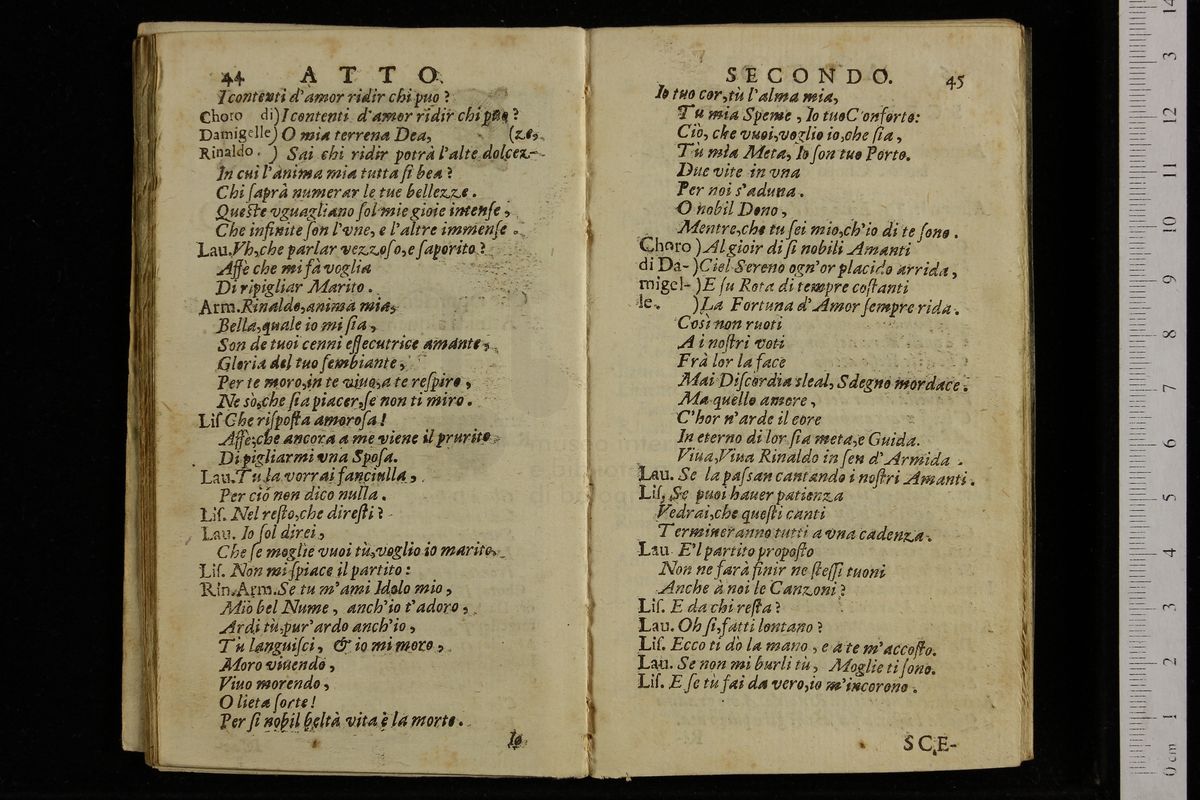 44 ATTO
I contenti d'amor ridir chi puo ?
Choro di) I contenti d'amor ridir chi puo ?
Damigelle) O mia terrena Dea, (ze,
Rinaldo. ) Sai chi ridir potrà l'alte dolcez-
In cui l'anima mia tutta ſi bea ?
Chi ſaprà numerar le tue bellezze.
Queſte vguagliano ſol mie gioie intenſe,
Che infinite ſon l'vne, e l'altre immenſe.
Lau. Vh, che parlar vezzoſo, e ſaporito ?
Affè che mi fà voglia
Di ripigliar Marito.
Arm. Rinaldo, anima mia,
Bella, quale io mi ſia,
Son de tuoi cenni eſſecutrice amante,
Gloria del tuo ſembiante,
Per te moro, in te viuo, a te reſpiro,
Ne sò, che ſia piacer, ſe non ti miro.
Liſ Che riſpoſta amoroſa!
Affè, che ancora a me viene il prurito
Di pigliarmi vna Spoſa.
Lau. Tu la vorrai fanciulla,
Per ciò non dico nulla.
Liſ. Nel reſto, che direſti ?
Lau. Io ſol direi,
Che ſe moglie vuoi tù, voglio io marito.
Liſ. Non mi ſpiace il partito:
Rin. Arm. Se tu m'ami Idolo mio,
Mio bel Nume, anch'io t'adoro,
Ardi tù, pur'ardo anch'io,
Tù languiſci, & io mi moro,
Moro viuendo,
Viuo morendo,
O lieta ſorte!
Per ſi nobil beltà vita è la morte.
Io
SECONDO. 45
Io tuo cor, tù l'alma mia,
Tù mia Speme, Io tuo Conforto:
Ciò, che vuoi, voglio io, che ſia,
Tù mia Meta, Io ſon tuo Porto.
Due vite in vna
Per noi s'aduna.
O nobil Dono,
Mentre, che tu ſei mio, ch'io di te ſono.
Choro ) Al gioir di ſi nobili Amanti
di Da- ) Ciel Sereno ogn'or placido arrida,
migel- ) E ſu Rota di tempre coſtanti
le. ) La Fortuna d'Amor ſempre rida.
Così non ruoti
A i noſtri voti
Frà lor la face
Mai Diſcordia sleal, Sdegno mordace.
Ma quello amore,
C'hor n'arde il core
In eterno di lor ſia meta, e Guida.
Viua, Viua Rinaldo in ſen d'Armida.
Lau. Se la paſsan cantando i noſtri Amanti.
Liſ. Se puoi hauer patienza
Vedrai, che queſti canti
Termineranno tutti a vna cadenza.
Lau E'l partito propoſto
Non ne farà finir ne ſteſſi tuoni
Anche à noi le Canzoni ?
Liſ. E da chi reſta ?
Lau. Oh ſi, fatti lontano ?
Liſ. Ecco ti dò la mano, e a te m'accoſto.
Lau. Se non mi burli tù, Moglie ti ſono.
Liſ. E ſe tù fai da vero, io m'incorono.
SCE-
0 cm 1 2 3 4 5 6 7 8 9 10 11 12 3 14